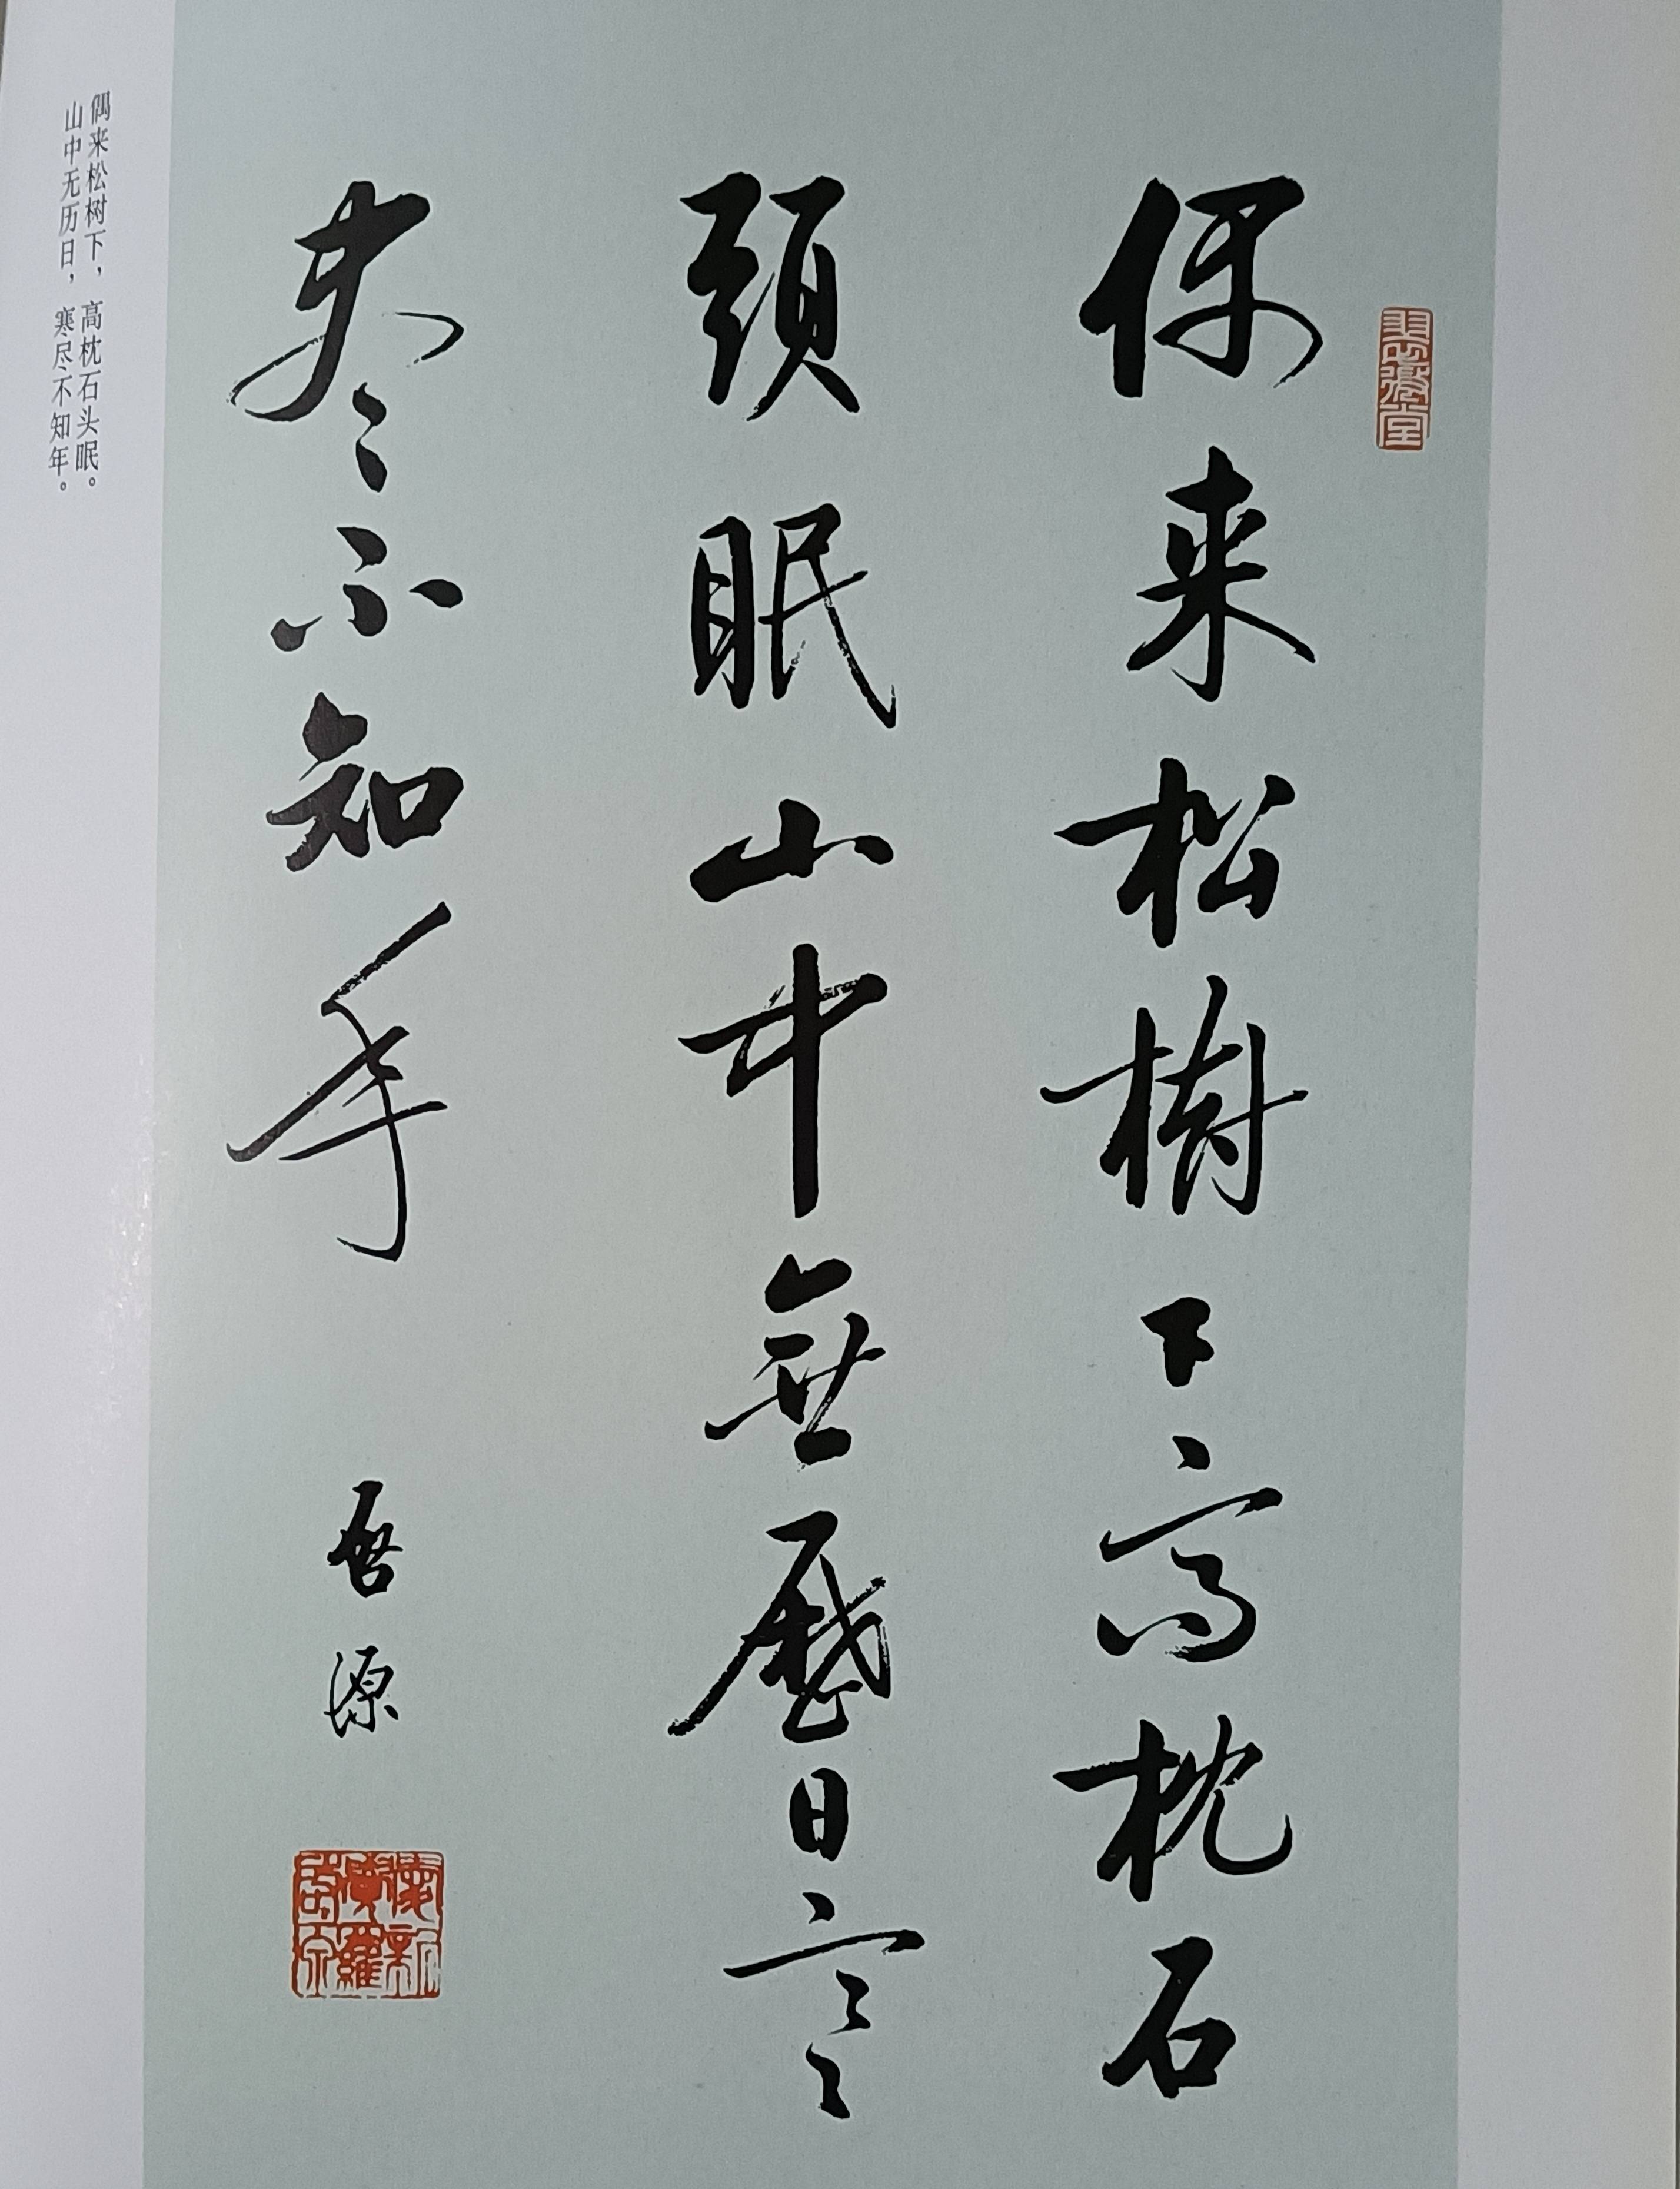 偶来松樹下高枕石
頭眠山中無歷日寒
尽不知年
啓源
偶来松树下，高枕石头眠。
山中无历日，寒尽不知年。